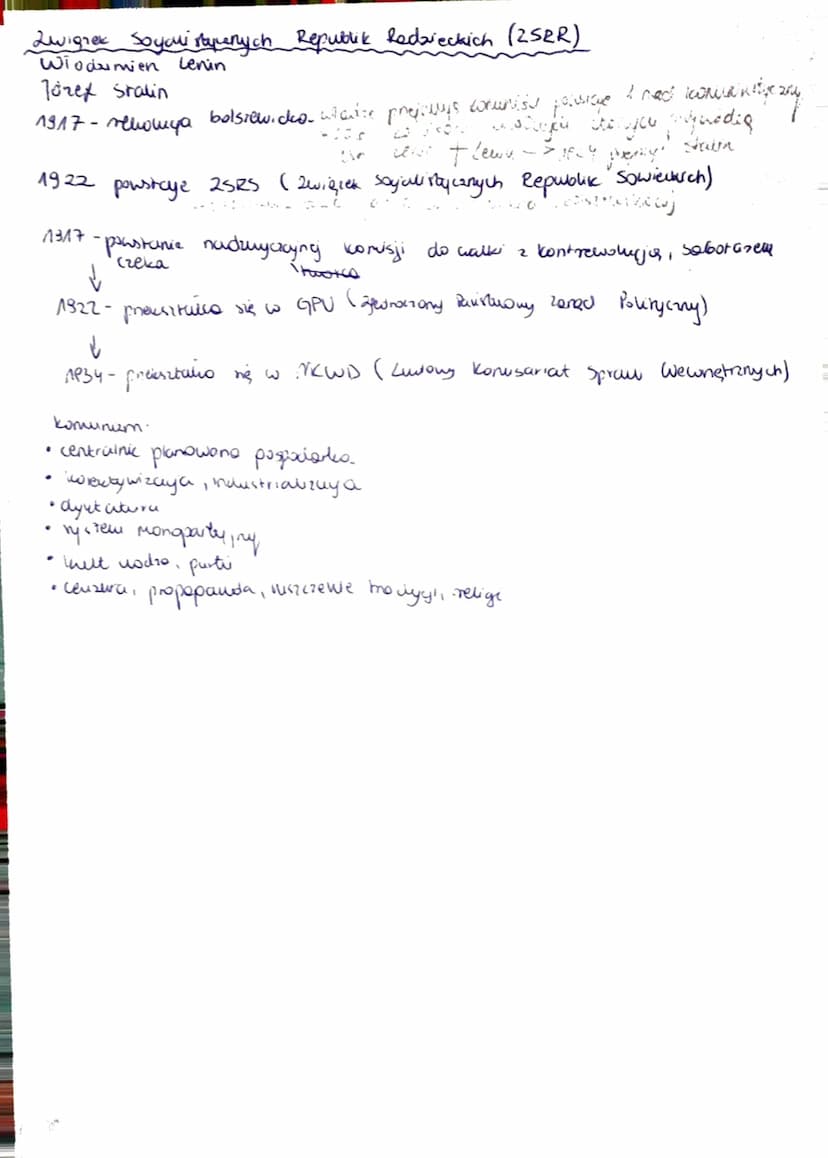 Związek Socjalistycznych Republik Radzieckich (ZSRR)
Włodzimierz Lenin
Józef Stalin
1917 - rewolucja bolszewicka - władzę przejmują komuniści powstaje 1 rząd komunistyczny
+ Lenin ->
1922 powstaje ZSRS (Związek Socjalistycznych Republik Sowieckich)
1917 - powstanie nadzwyczajnej komisji do walki z kontrrewolucją, sabotażem
czeka
↓
1922 - przekształca się w GPU (Zjednoczony Państwowy Zarząd Polityczny)
↓
1934 - przekształca się w NKWD (Ludowy Komisariat Spraw Wewnętrznych)
komunizm
• centralnie planowana gospodarka
• kolektywizacja, industrializacja
• dyktatura
• system monopartyjny
• kult wodza, partii
• cenzura, propaganda, niszczenie tradycji, religii